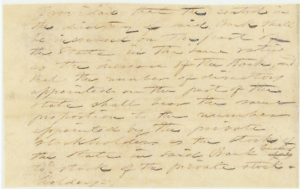 Provided that the
the directors of said Bank shall
be
the State in the same ratio
as the increase of the stock, and
that the number of directors
appointed on the part of the
State shall bear the same
proportion to the number
appointed by the private
stockholders as the stock of
the State in said Bank
stock of the private stock
holders